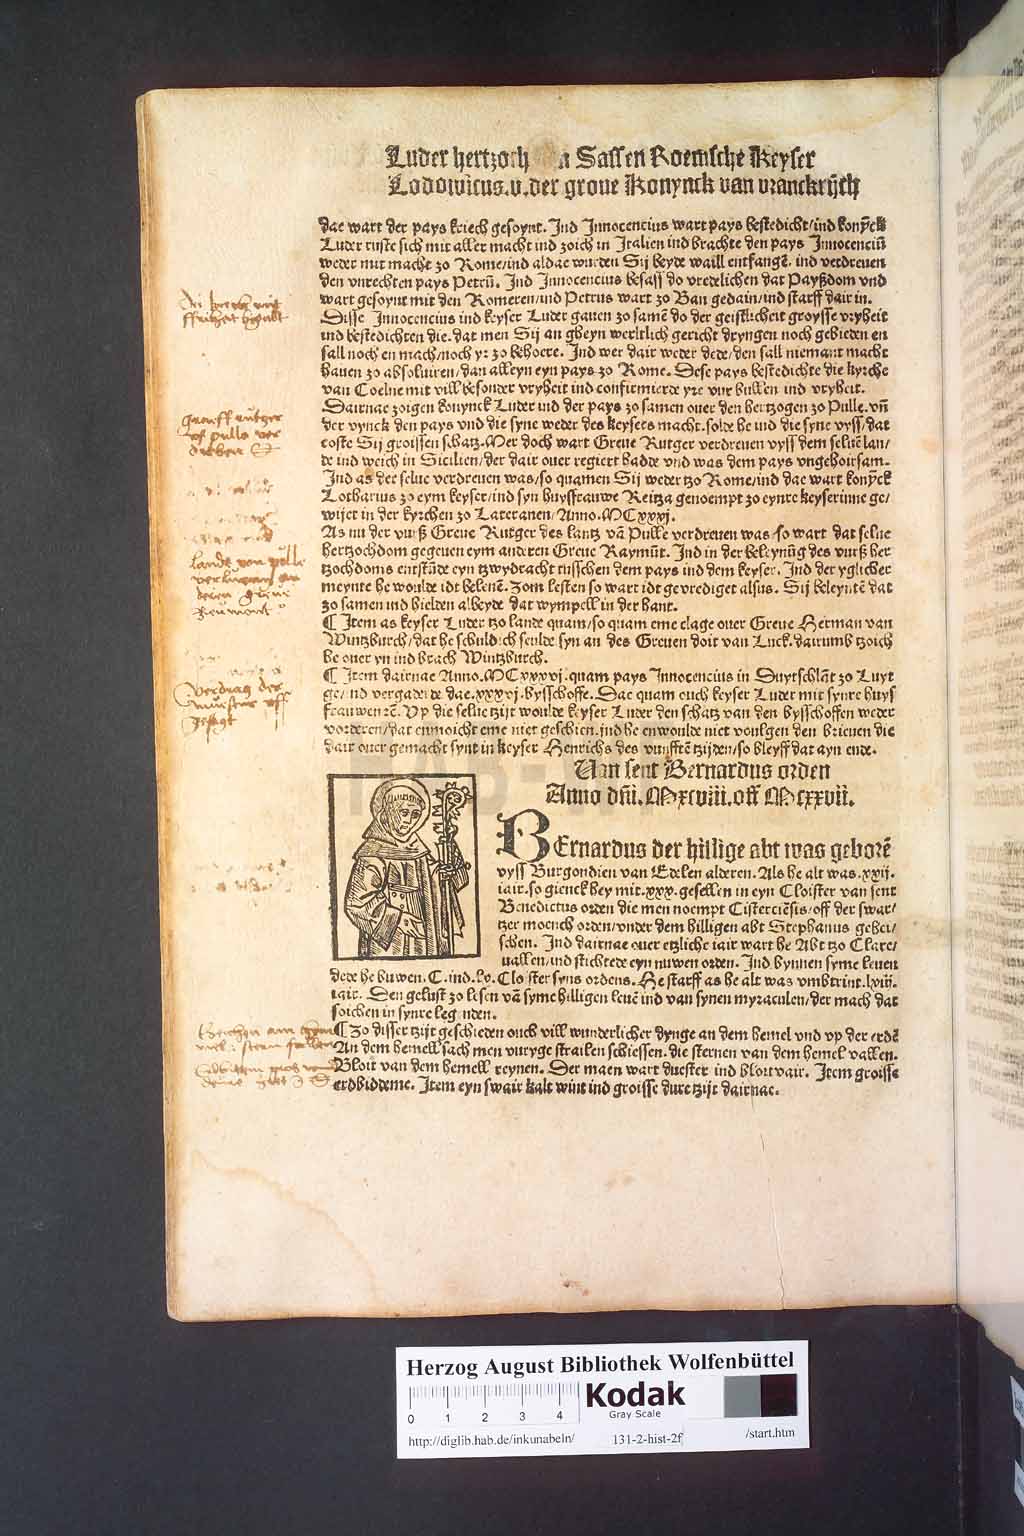 Luder hertzoch a Sassen Roemsche Keyser
Lodowicus.v.der groue Konynck van vranckrijch
dae wart der pays kriech gesoynt. Ind Innocencius wart pays bestedicht/ind konyck
Luder ruste sich mit aller macht ind zoich in Italien ind brachte den pays Innocenciū
weder mit macht zo Rome/ind aldae wurden Sij beyde waill entfangē. ind verdreuen
den vnrechten pays Petrū. Ind Innocencius besass do vredelichen dat Payßdom vnd
wart gesoynt mit den Romeren/ind Petrus wart zo Ban gedain/ind starff dair in.
Disse Innocencius ind keyser Luder gauen zo samē do der geistlicheit groysse vryheit
ind bestedichten die. dat men Sij an gheyn werltlich gericht dryngen noch gebieden en
sall noch en mach/noch yr zo behoere. Ind wer dair weder dede/den sall niemant macht
hauen zo absoluiren/dan alleyn eyn pays zo Rome. Dese pays bestedichte die kyrche
van Coelne mit vill besonder vryheit ind confirmierde yre vur bullen ind vryheit.
Dairnae zoigen konynck Luder ind der pays zo samen ouer den hertzogen zo Pulle. vn̄
der vynck den pays vnd die syne weder des keysers macht. solde he ind die syne vyss/dat
coste Sij groissen schatz. Mer doch wart Greue Rutger verdreuen vyss dem seluē lan/
de ind weich in Sicilien/der dair ouer regiert hadde vnd was dem pays vngehoirsam.
Ind as der selue verdreuen was/so quamen Sij weder tzo Rome/ind dae wart konyck
Lotharius zo eym keyser/ind syn huysfrauwe Reitza genoempt zo eynre keyserinne ge/
wijet in der kyrchen zo Lateranen/Anno. MCxxxj.
As nu der vurß Greue Rutger des lantz vā Pulle verdreuen was/so wart dat selue
hertzochdom gegeuen eym anderen Greue Raymūt. Ind in der beleynūg des vurß her
tzochdoms entstūde eyn tzwydracht tusschen dem pays ind dem keyser. Ind der yglicher
meynte he woulde idt belenē. Zom lesten so wart idt gevrediget alsus. Sij beleyntē dat
zo samen ind hielden albeyde dat wympell in der hant.
¶ Item as keyser Luder tzo lande quam/so quam eme clage ouer Greue Herman van
Wintzburch/dat he schuldich seulde syn an des Greuen doit van Luck. dairumb tzoich
he ouer yn ind brach Wintzburch.
¶ Item dairnae Anno. MCxxxvj. quam pays Innocencius in Duytschlāt zo Luyt
ge/ind vergaderde dae.xxxvj.bysschoffe. Dae quam ouch keyser Luder mit synre huys
frauwen rc̄. Vp die selue tzijt woulde keyser Luder den schatz van den bysschoffen weder
vorderen/dat enmoicht eme niet geschien.ind he enwoulde niet voulgen den brieuen die
dair ouer gemacht synt in keyser Henrichs des vunfftē tzijden/so bleyff dat ayn ende.
Van sent Bernardus orden
Anno dñi. Mxcviii. off Mcxxvii.
BErnardus der hillige abt was geborē
vyss Burgondien van Edelen alderen. Als he alt was.xxij.
iair.so gienck hey mit.xxx.gesellen in eyn Cloister van sent
Benedictus orden die men noempt Cisterciēsis/off der swar/
tzer moench orden/vnder dem hilligen abt Stephanus gehei/
schen. Ind dairnae ouer etzliche iair wart he Abt tzo Clare/
uallen/ind stichtede eyn nuwen orden. Ind bynnen syme leuen
dede he buwen. C. ind. lx. Cloister syns ordens. He starff as he alt was vmbtrint.lxiij.
iair. Den gelust zo lesen vā syme hilligen leuē ind van synen myraculen/der mach dat
soichen in synre legenden.
¶ Zo disser tzijt geschieden ouch vill wunderlicher dynge an dem hemel vnd vp der erdē
An dem hemell sach men vuryge strailen schiessen. die sternen van dem hemel vallen.
Bloit van dem hemell reynen. Der maen wart duester ind bloitvair. Item groisse
erdbiddeme. Item eyn swair kalt wint ind groisse dure tzijt dairnae.
Herzog August Bibliothek Wolfenbüttel
0 1 2 3 4
Kodak
Gray Scale
http://diglib.hab.de/inkunabeln/ 131-2-hist-2f /start.htm